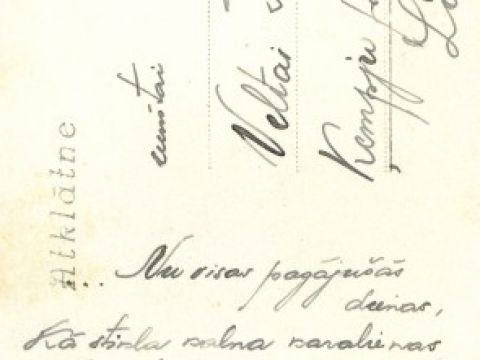 Atklātne
cienītai
Veltai
Kempju
... Nu visas pagājušās
dienas,
Kā stikla kalna karalienas